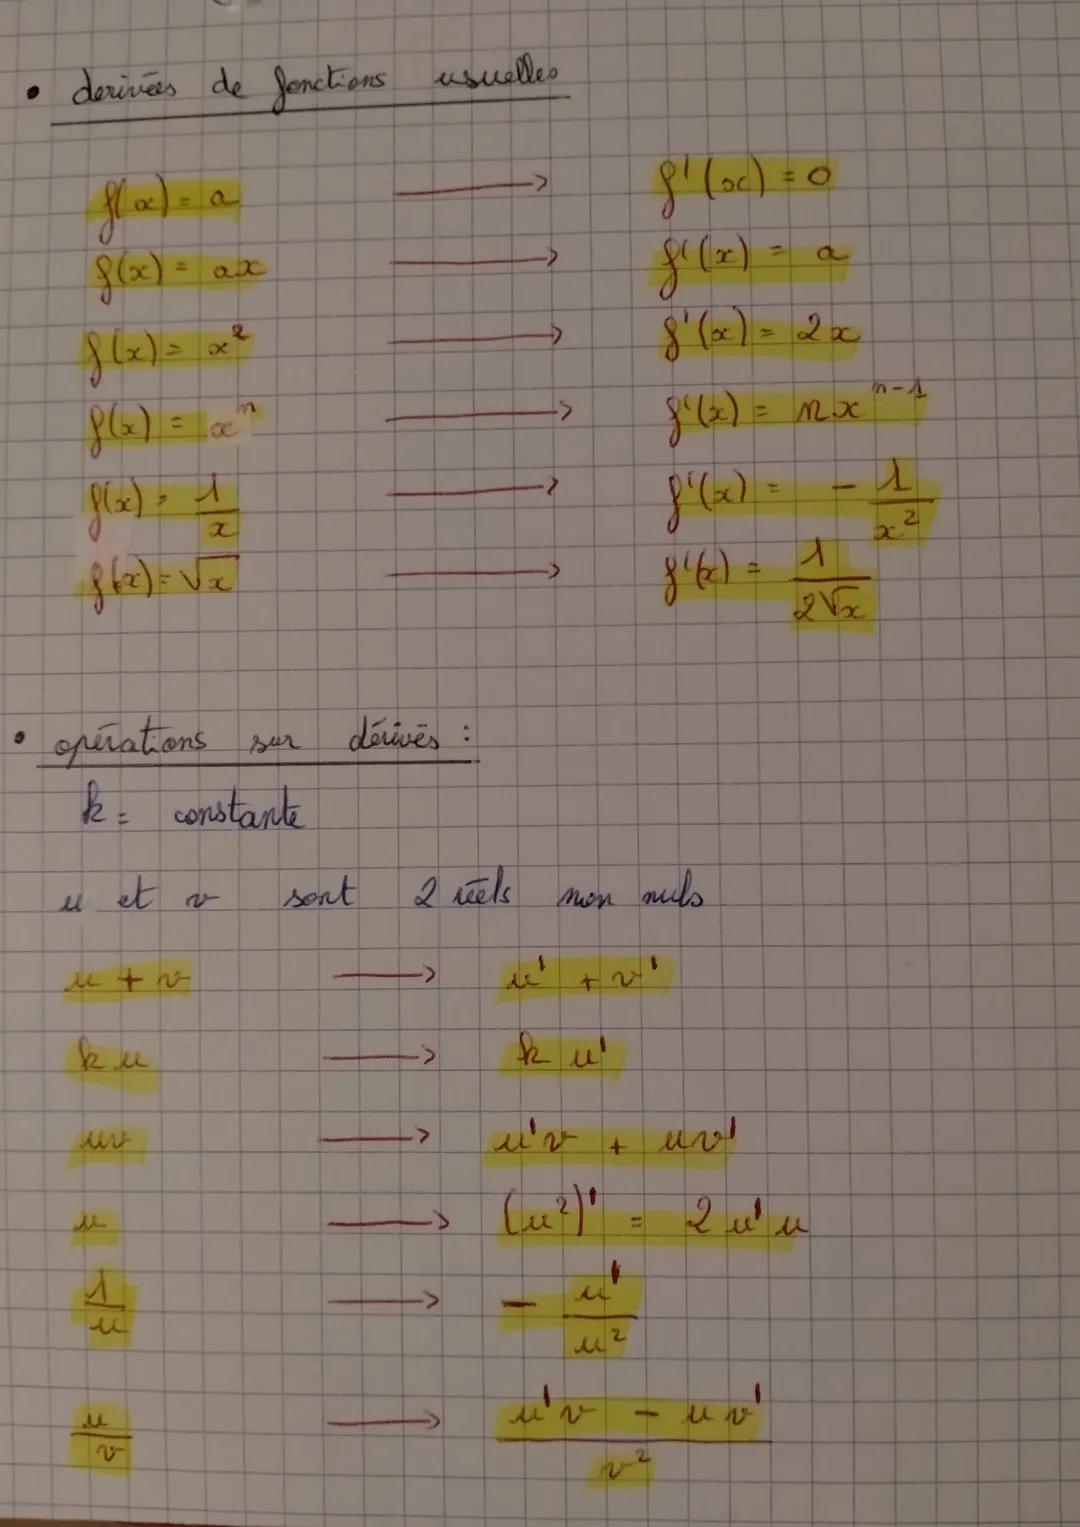 • derivées de fonctions usuelles
f(x) = a → f'(x) = 0
f(x) = ax → f'(x) = a
f(x) = x² → f'(x) = 2x
f(x) = xⁿ → f'(x) = nxⁿ⁻¹
f(x) = 1/x → f'(x) = - 1/x²
f(x) = √x → f'(x) = 1/(2√x)
• opérations sur dérivés :
k = constante
u et v sont 2 réels non nuls
u + v → u' + v'
k u → k u'
uv → u'v + uv'
u → (u²)' = 2 u' u
1/u → - u'/u²
u/v → (u'v - uv')/v²